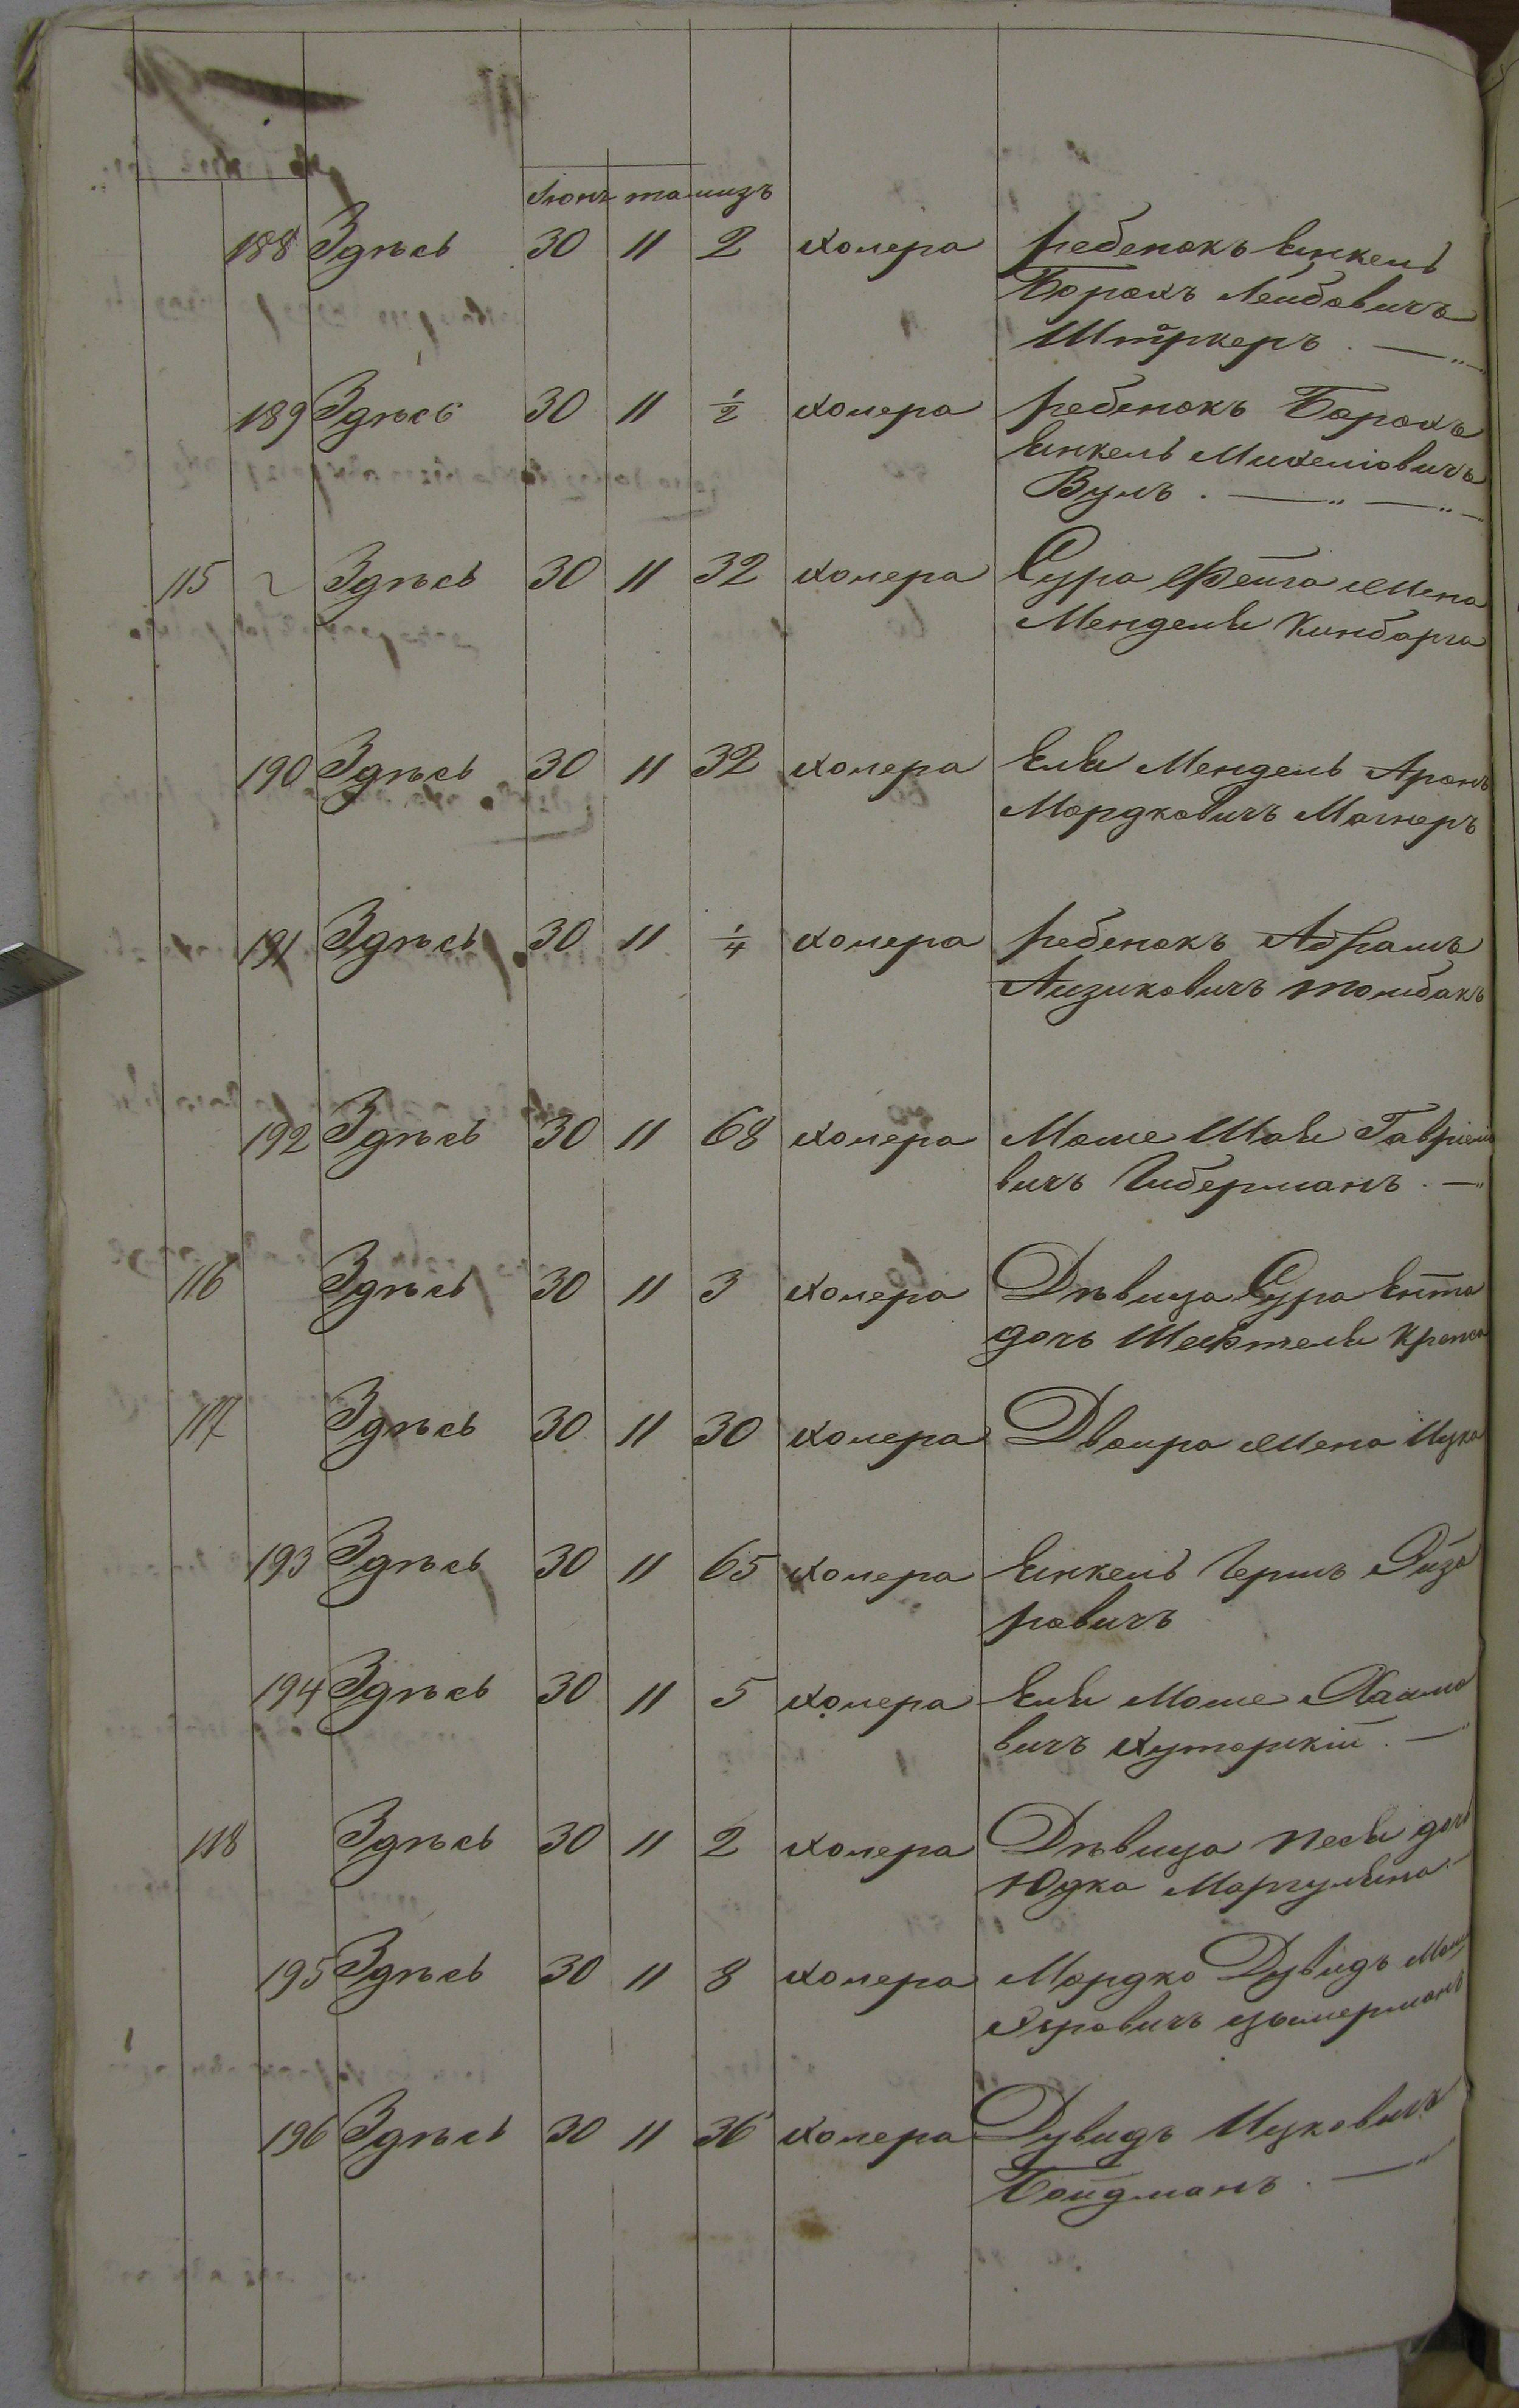 Іюнь тамизъ
188 Здѣсь 30 11 2 холера ребенокъ Янкель
Борохъ Лейбовичъ
Штркеръ . — „ —
189 Здѣсь 30 11 1/2 холера ребенокъ Борохъ
Янкель Михеліовичъ
Вулъ . — „ — „ —
115 ~ Здѣсь 30 11 32 холера Сура Фейга жена
Менделя Кинбарга
190 Здѣсь 30 11 32 холера Еля Мендель Аронъ
Мордковичъ Магнеръ
191 Здѣсь 30 11 1/4 холера ребенокъ Абрамъ
Айзиковичъ Толибакъ
192 Здѣсь 30 11 68 холера Моше Шая Гавріеліо
вичъ Либерманъ . — „
116 Здѣсь 30 11 3 холера Дѣвица Сура Ента
дочь Шефтеля
117 Здѣсь 30 11 30 холера Двойра жена Ицка
193 Здѣсь 30 11 65 холера Янкель Гершъ
ровичъ
194 Здѣсь 30 11 5 холера Еля Моше Хаимо
вичъ Хуторскій . — „
118 Здѣсь 30 11 2 холера Дѣвица Песя дочь
Юдка Маргуляна —
195 Здѣсь 30 11 8 холера Мордко Дувидъ
ровичъ Цымерманъ
196 Здѣсь 30 11 36 холера Дувидъ Ицковичъ
Бойдманъ . — „